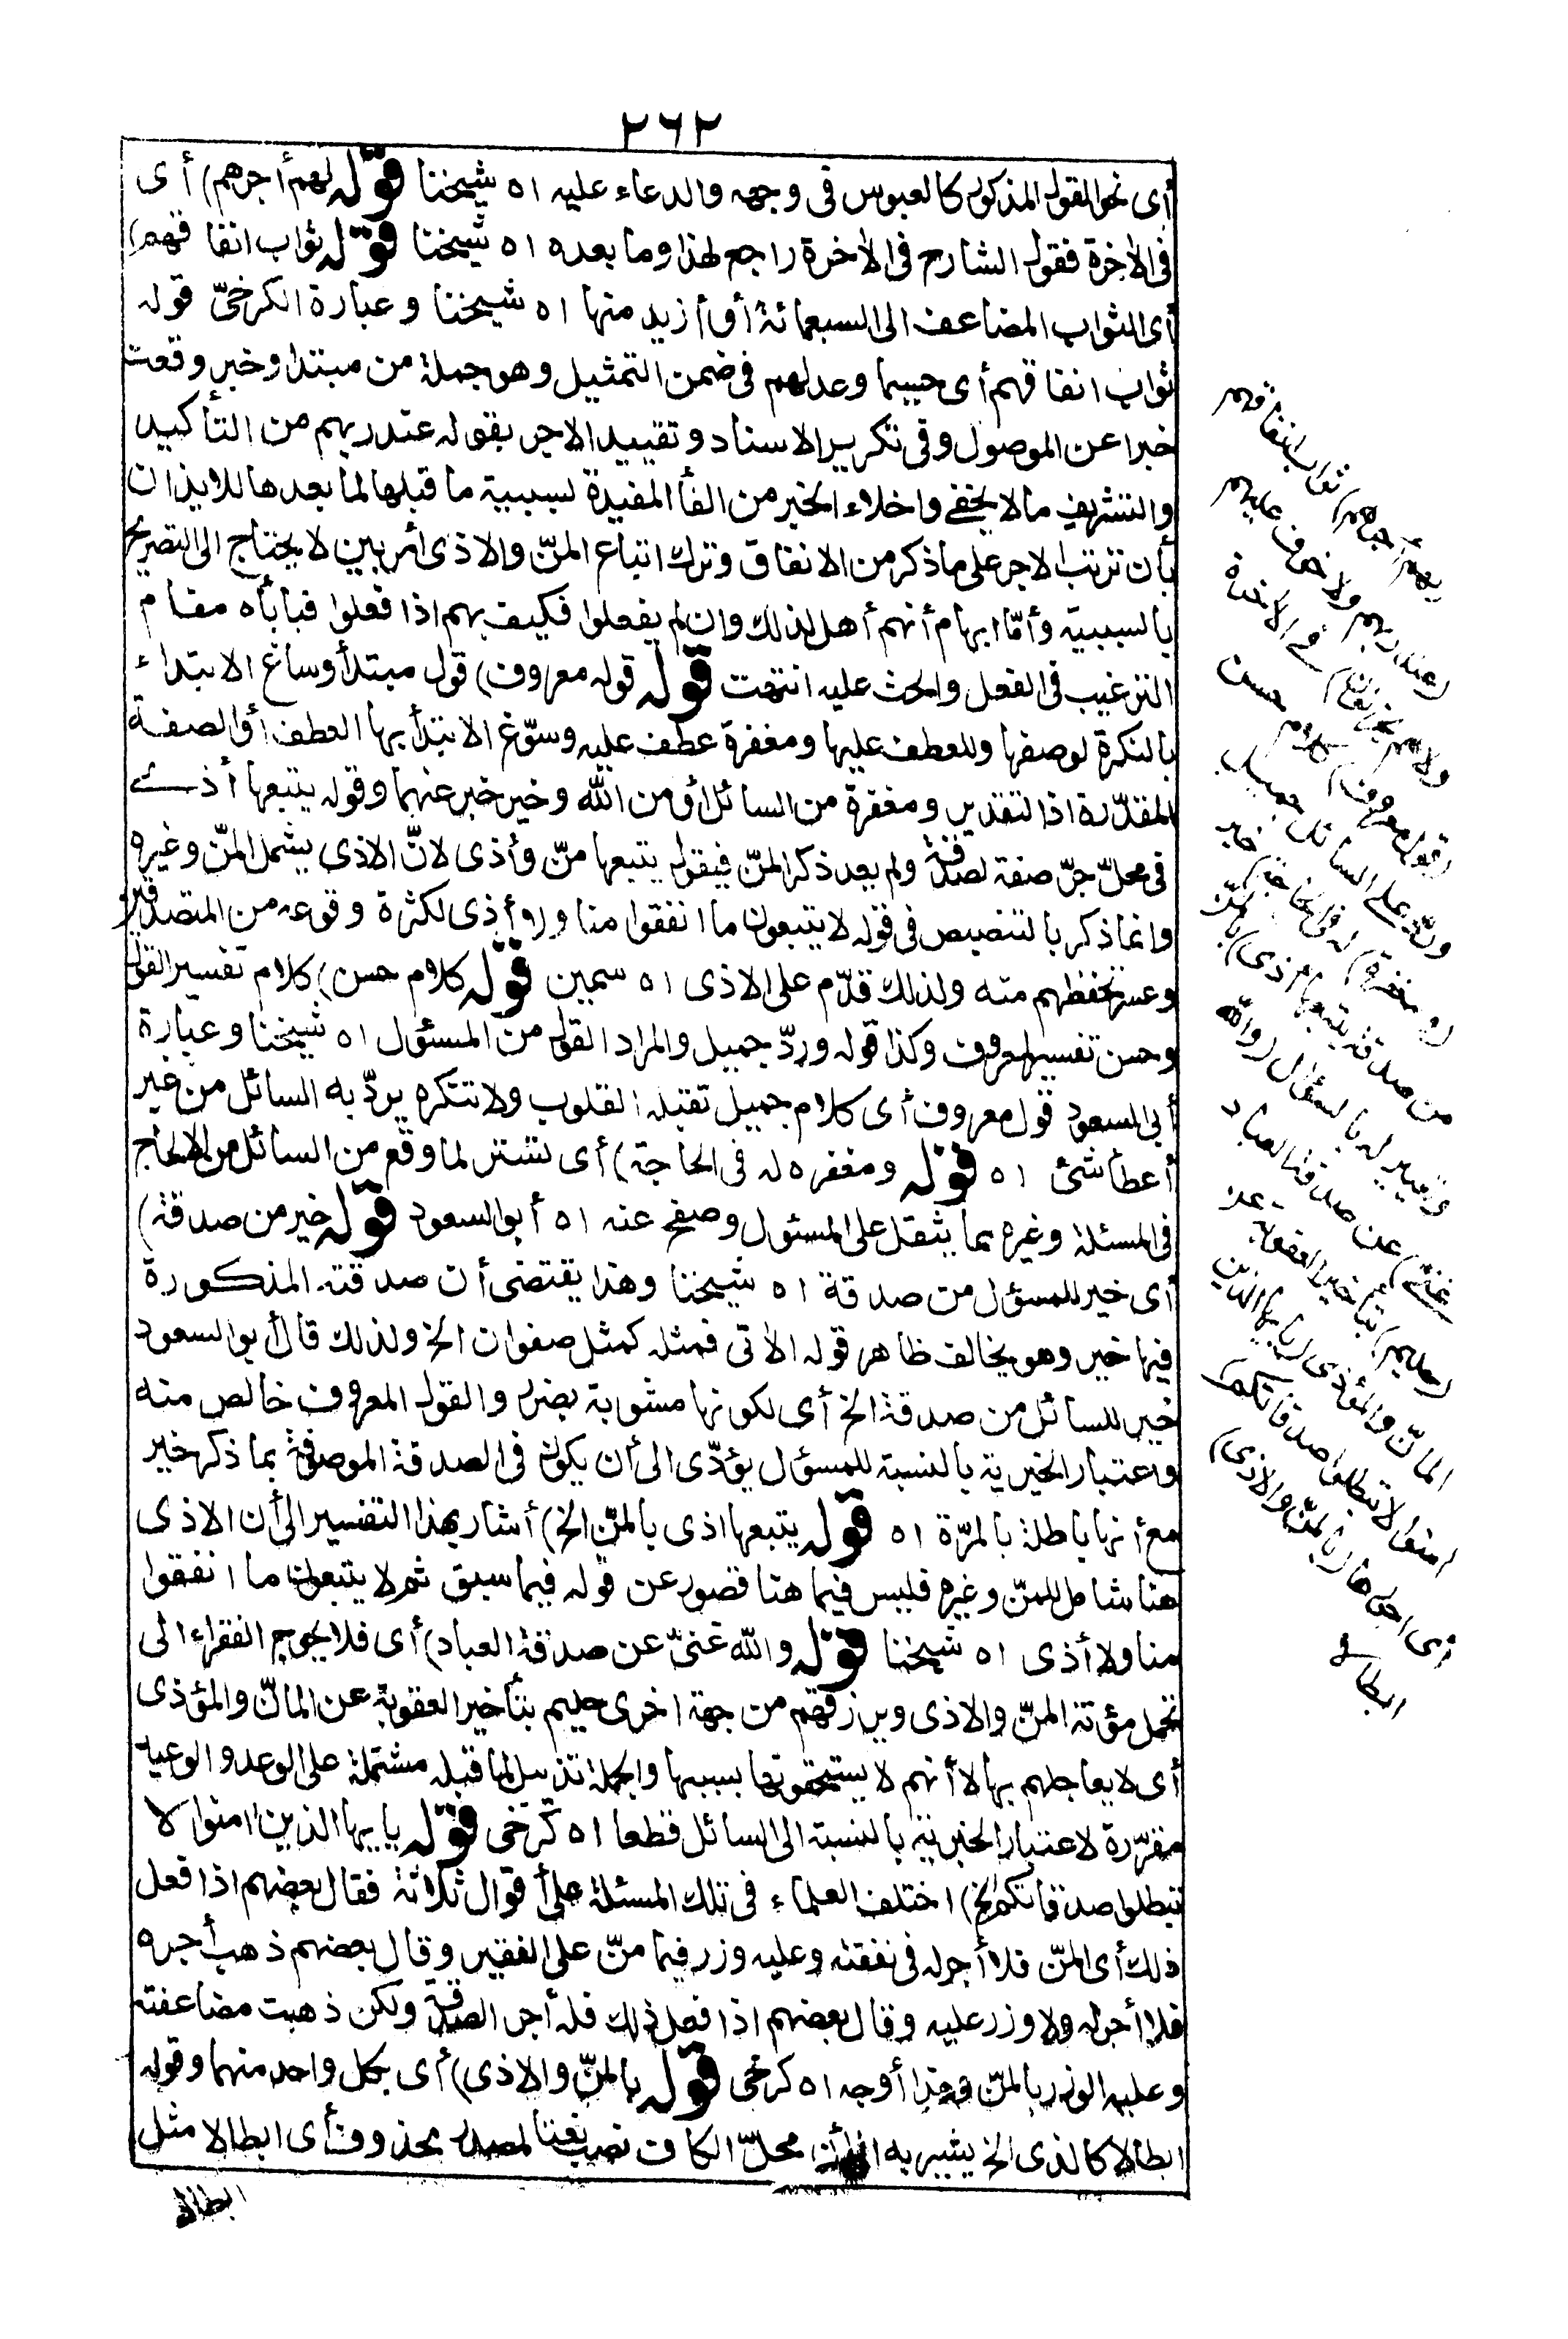 ٢٦٢
أى نحو القول المذكور كالعبوس فى وجهه والدعاء عليه اه شيخنا قوله لهم أجرهم) أى
فى الآخرة فقول الشارح فى الآخرة راجع لهذا وما بعده اه شيخنا قوله ثواب انفاقهم)
أى الثواب المضاعف الى السبعمائة أو أزيد منها اه شيخنا وعبارة الكرخىّ قوله
ثواب انفاقهم أى حسبما وعد لهم فى ضمن التمثيل وهو جملة من مبتدا وخبر وقعت
خبرا عن الموصول وفى تكرير الاسناد وتقييد الاجر بقوله عند ربهم من التأكيد
والتشريف مالا يخفى واخلاء الخبر من الفأ المفيدة لسببية ما قبلها لما بعدها للايذان
بأن ترتب الاجر على ما ذكر من الانفاق وترك اتباع المنّ والاذى أمر بين لا يحتاج الى التصريح
بالسببية وأمّا ايهام أنهم أهل لذلك وان لم يفعلوا فكيف بهم اذا فعلوا فيأباه مقام
الترغيب فى الفعل والحث عليه انتهت قوله قوله معروف) قول مبتدأ وساغ الابتداء
بالنكرة لوصفها وللعطف عليها ومغفرة عطف عليه وسوّغ الابتدأ بها العطف أو الصفة
المقدّرة اذ التقدير ومغفرة من السائل أو من الله وخير خبر عنهما وقوله يتبعها أذى
فى محلّ جرّ صفة لصدقة ولم يعد ذكر المنّ فيقول يتبعها منّ وأذى لانّ الاذى يشمل المنّ وغيره
وانما ذكر بالتنصيص فى قوله لا يتبعون ما انفقوا منا ولا أذى لكثرة وقوعه من المتصدقين
وعسر تحفظهم منه ولذلك قدّم على الاذى اه سمين قوله كلام حسن) كلام تفسير القول
وحسن تفسير لمعروف وكذا قوله وردّ جميل والمراد القول من المسئول اه شيخنا وعبارة
أبى السعود قول معروف أى كلام جميل تقبله القلوب ولا تنكره يردّ به السائل من غير
أعطأ شئ اه قوله ومغفره له فى الحاجة) أى تستر لما وقع من السائل من الالحاح
فى المسئلة وغيره مما يثقل على المسئول وصفح عنه اه أبو السعود قوله خير من صدقة)
أى خير للمسؤل من صدقة اه شيخنا وهذا يقتضى أن صدقته المذكورة
فيها خير وهو يخالف ظاهر قوله الآتى فمثله كمثل صفوان الخ ولذلك قال أبو السعود
خير للسائل من صدقة الخ أى لكونها مشوبة بضرر والقول المعروف خالص منه
واعتبار الخيرية بالنسبة للمسؤل يؤدّى الى أن يكون فى الصدقة الموصوفة بما ذكر خير
مع أنها باطلة بالمرّة اه قوله يتبعها اذى بالمنّ الخ) أشار بهذا التفسير الى أن الاذى
هنا شامل للمنّ وغيره فليس فيما هنا قصور عن قوله فيما سبق ثم لا يتبعون ما انفقوا
منا ولا أذى اه شيخنا قوله والله غنىّ عن صدقة العباد) أى فلا يحوج الفقراء الى
تحمل مؤنة المنّ والاذى ويرزقهم من جهة اخرى حليم بتأخير العقوبة عن المانّ والمؤذى
أى لا يعاجلهم بها لا أنهم لا يستحقونها بسببهما والجملة تذييل لما قبله مشتملة على الوعد والوعيد
مقرّرة لاعتبار الخيرية بالنسبة الى السائل قطعا اه كرخى قوله يا يها الذين امنوا لا
تبطلوا صدقاتكم الخ) اختلف العلماء فى تلك المسئلة على أقوال ثلاثة فقال بعضهم اذا فعل
ذلك أى المنّ فلا أجر له فى نفقته وعليه وزر فيما منّ على الفقير وقال بعضهم ذهب أجره
فلا أجر له ولا وزر عليه وقال بعضهم اذا فعل ذلك فله أجر الصدقة ولكن ذهبت مضاعفته
وعليه الوزر بالمنّ وهذا أوجه اه كرخى قوله بالمنّ والاذى) أى بكل واحد منهما وقوله
ابطالا كالذى الخ يشير به الى أن محلّ الكاف نصب نعتا لمصدر محذوف أى ابطالا مثل
ابطال
لهم أجرهم) ثواب انفاقهم
(عند ربهم ولا خوف عليهم
ولا هم يحزنون) فى الآخرة
(قول معروف) كلام حسن
وردّ على السائل جميل
(ومغفرة) له فى الحاجة (خير
من صدقة يتبعها أذى) بالمنّ
وتعيير له بالسؤال (والله
غنى) عن صدقة العباد
(حليم) بتأخير العقوبة عن
المانّ والمؤذى (يا يها الذين
امنوا لا تبطلوا صدقاتكم)
أى اجورها (بالمنّ والاذى)
ابطالا